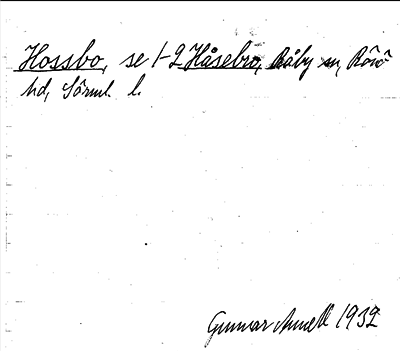 Hossbo, se 1-2 Håsebro, Råby sn, Rönö
hd, Sörml. l.
Gunnar Arnell 1932